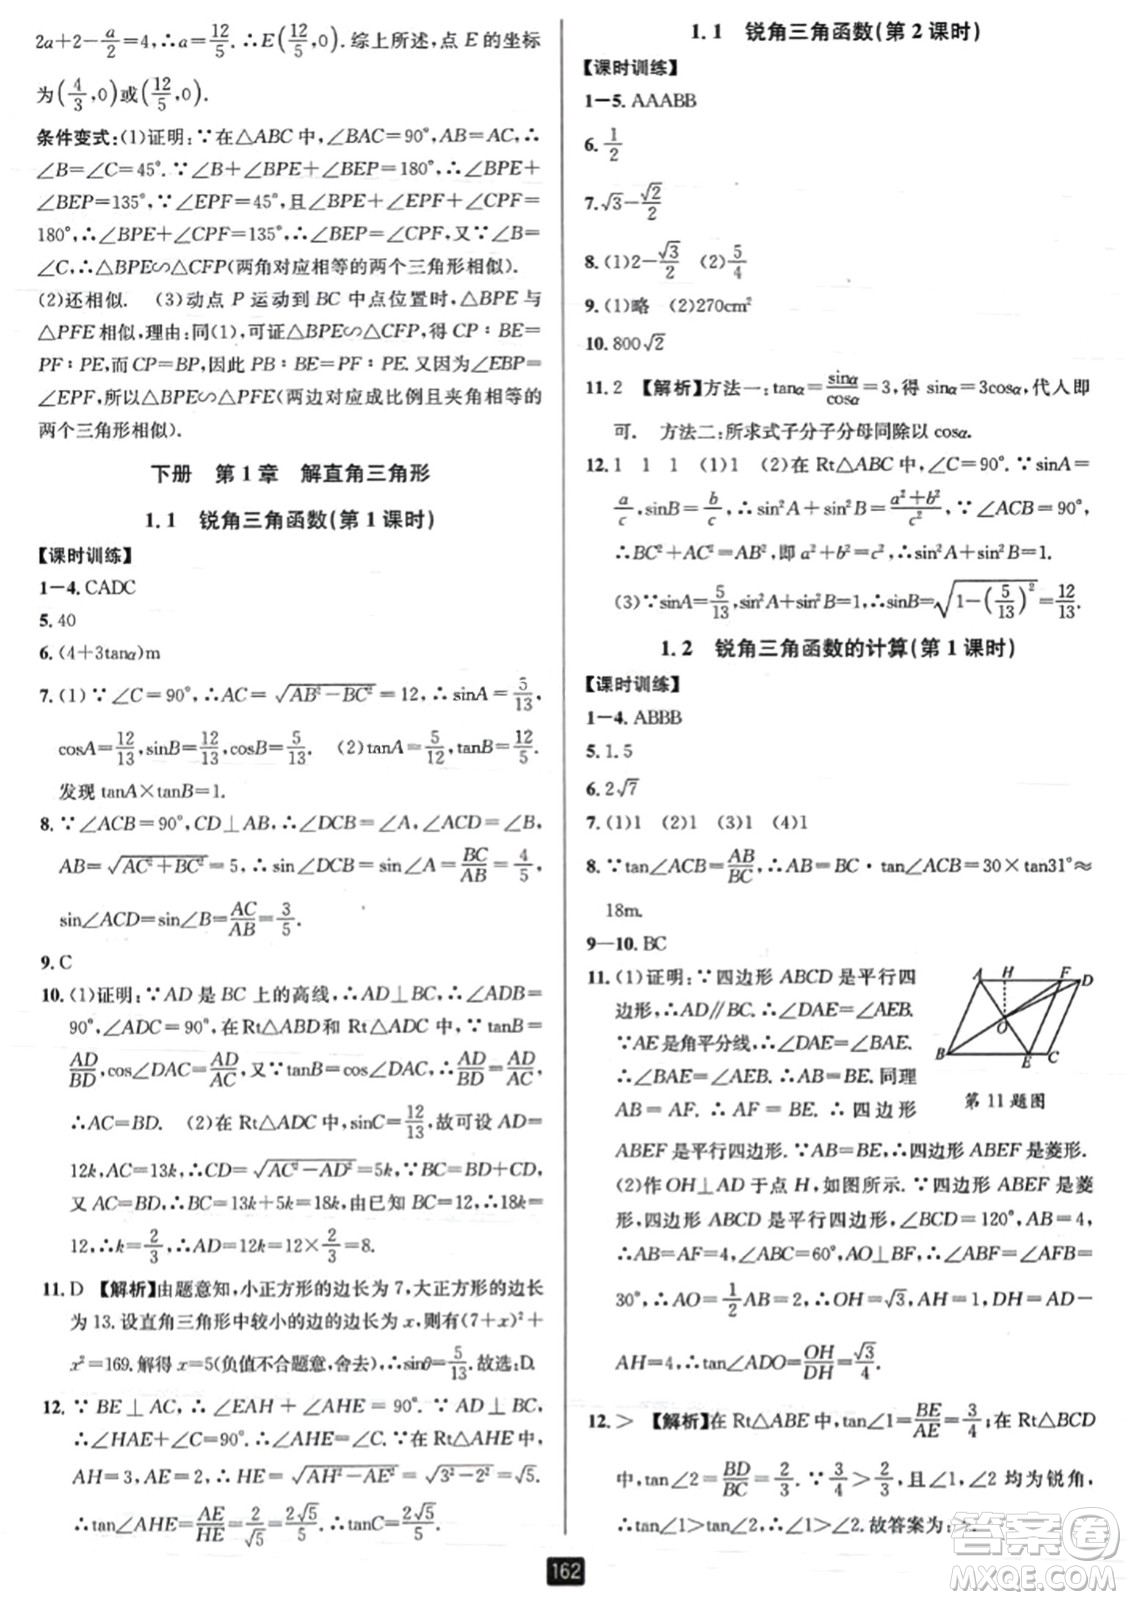 2a+2-a/2=4,∴a=12/5.∴E(12/5,0).综上所述,点 E 的坐标
为(4/3,0)或(12/5,0).
条件变式:(1)证明:∵在△ABC 中,∠BAC=90°,AB=AC,∴
∠B=∠C=45°.∵∠B+∠BPE+∠BEP=180°,∴∠BPE+
∠BEP=135°,∵∠EPF=45°,且∠BPE+∠EPF+∠CPF=
180°,∴∠BPE+∠CPF=135°,∴∠BEP=∠CPF,又∵∠B=
∠C,∴△BPE∽△CFP(两角对应相等的两个三角形相似).
(2)还相似. (3)动点 P 运动到 BC 中点位置时,△BPE与
△PFE相似,理由:同(1),可证△BPE∽△CFP,得 CP∶BE=
PF∶PE,而 CP=BP,因此 PB∶BE=PF∶PE.又因为∠EBP=
∠EPF,所以△BPE∽△PFE(两边对应成比例且夹角相等的
两个三角形相似).
下册 第1章 解直角三角形
1.1 锐角三角函数(第1课时)
【课时训练】
1-4. CADC
5. 40
6. (4+3tanα)m
7. (1)∵∠C=90°,∴AC=√(AB²-BC²)=12,∴sinA=5/13,
cosA=12/13,sinB=12/13,cosB=5/13. (2)tanA=5/12,tanB=12/5.
发现 tanA×tanB=1.
8. ∵∠ACB=90°,CD⊥AB,∴∠DCB=∠A,∠ACD=∠B,
AB=√(AC²+BC²)=5,∴sin∠DCB=sin∠A=BC/AB=4/5,
sin∠ACD=sin∠B=AC/AB=3/5.
9. C
10. (1)证明:∵AD 是 BC 上的高线,∴AD⊥BC,∴∠ADB=
90°,∠ADC=90°,在Rt△ABD和 Rt△ADC 中,∵tanB=
AD/BD,cos∠DAC=AD/AC,又∵tanB=cos∠DAC,∴AD/BD=AD/AC,
∴AC=BD. (2)在 Rt△ADC 中,sinC=12/13.故可设 AD=
12k,AC=13k,∴CD=√(AC²-AD²)=5k.∵BC=BD+CD,
又 AC=BD,∴BC=13k+5k=18k,由已知 BC=12,∴18k=
12,∴k=2/3,∴AD=12k=12×2/3=8.
11. D 【解析】由题意知,小正方形的边长为 7,大正方形的边长
为 13.设直角三角形中较小的边的边长为 x,则有(7+x)²+
x²=169.解得 x=5(负值不合题意,舍去),∴sinθ=5/13.故选:D.
12. ∵BE⊥AC,∴∠EAH+∠AHE=90°.∵AD⊥BC,
∴∠HAE+∠C=90°,∴∠AHE=∠C.在 Rt△AHE 中,
AH=3,AE=2,∴HE=√(AH²-AE²)=√(3²-2²)=√5.
∴tan∠AHE=AE/HE=2/√5=2√5/5,∴tanC=2√5/5.
1.1 锐角三角函数(第2课时)
【课时训练】
1-5. AAABB
6. 1/2
7. √3-√2/2
8. (1)2-√3/2 (2)5/4
9. (1)略 (2)270cm²
10. 800√2
11. 2 【解析】方法一:tanα=sinα/cosα=3,得 sinα=3cosα,代人即
可. 方法二:所求式子分子分母同除以 cosα.
12. 1 1 1 (1)1 (2)在 Rt△ABC 中,∠C=90°.∵sinA=
a/c,sinB=b/c,∴sin²A+sin²B=(a²+b²)/c²,∵∠ACB=90°,
∴BC²+AC²=AB²,即 a²+b²=c²,∴sin²A+sin²B=1.
(3)∵sinA=5/13,sin²A+sin²B=1,∴sinB=√(1-(5/13)²)=12/13.
1.2 锐角三角函数的计算(第1课时)
【课时训练】
1-4. ABBB
5. 1.5
6. 2√7
7. (1)1 (2)1 (3)1 (4)1
8. ∵tan∠ACB=AB/BC,∴AB=BC·tan∠ACB=30×tan31°≈
18m.
9-10. BC
11. (1)证明:∵四边形 ABCD 是平行四
边形,∴AD∥BC.∴∠DAE=∠AEB.
∵AE是角平分线,∴∠DAE=∠BAE.
∴∠BAE=∠AEB.∴AB=BE.同理
AB=AF.∴AF=BE.∴四边形
ABEF 是平行四边形.∵AB=BE,∴四边形 ABEF 是菱形.
(2)作 OH⊥AD 于点 H,如图所示.∵四边形 ABEF 是菱
形,四边形 ABCD 是平行四边形,∠BCD=120°,AB=4,
∴AB=AF=4,∠ABC=60°,AO⊥BF,∴∠ABO=∠AFB=
30°,∴AO=1/2AB=2,∴OH=√3,AH=1,DH=AD-
AH=4,∴tan∠ADO=OH/DH=√3/4.
A H F D
O
B E C
第 11 题图
12. > 【解析】在 Rt△ABE 中,tan∠1=BE/AE=3/4;在 Rt△BCD
中,tan∠2=BD/BC=2/3.∵3/4>2/3,且∠1,∠2 均为锐角,
∴tan∠1>tan∠2,∴∠1>∠2.故答案为:>.
162
答案卷
MXQE.COM